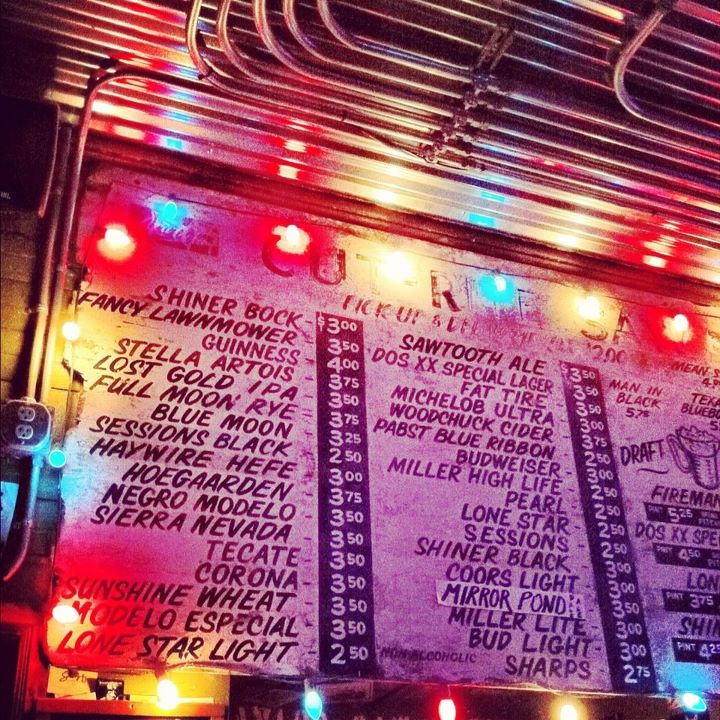 CUT-R
PICK UP &
SHINER BOCK $3.00
FANCY LAWNMOWER 3.50
GUINNESS 4.00
STELLA ARTOIS 3.75
LOST GOLD IPA 3.50
FULL MOON RYE 3.75
BLUE MOON 3.25
SESSIONS BLACK 2.50
HAYWIRE HEFE 3.00
HOEGAARDEN 3.75
NEGRO MODELO 3.50
SIERRA NEVADA 3.50
TECATE 3.50
CORONA 3.50
SUNSHINE WHEAT 3.50
MODELO ESPECIAL 3.50
LONE STAR LIGHT 2.50
SAWTOOTH ALE $3.50
DOS XX SPECIAL LAGER 3.50
FAT TIRE 3.50
MICHELOB ULTRA 3.00
WOODCHUCK CIDER 3.75
PABST BLUE RIBBON 2.50
BUDWEISER 3.00
MILLER HIGH LIFE 2.50
PEARL 2.50
LONE STAR 2.50
SESSIONS 2.50
SHINER BLACK 3.00
COORS LIGHT 3.00
MIRROR POND 3.50
MILLER LITE 3.00
BUD LIGHT 3.00
NON ALCOHOLIC SHARPS 2.75
MEAN S
MAN IN
BLACK
5.75
TEX
BLUEB
DRAFT
FIREMA
PINT 5.25
DOS XX SPE
PINT 4.50
LON
PINT 3.75
SHI
PINT 4.25